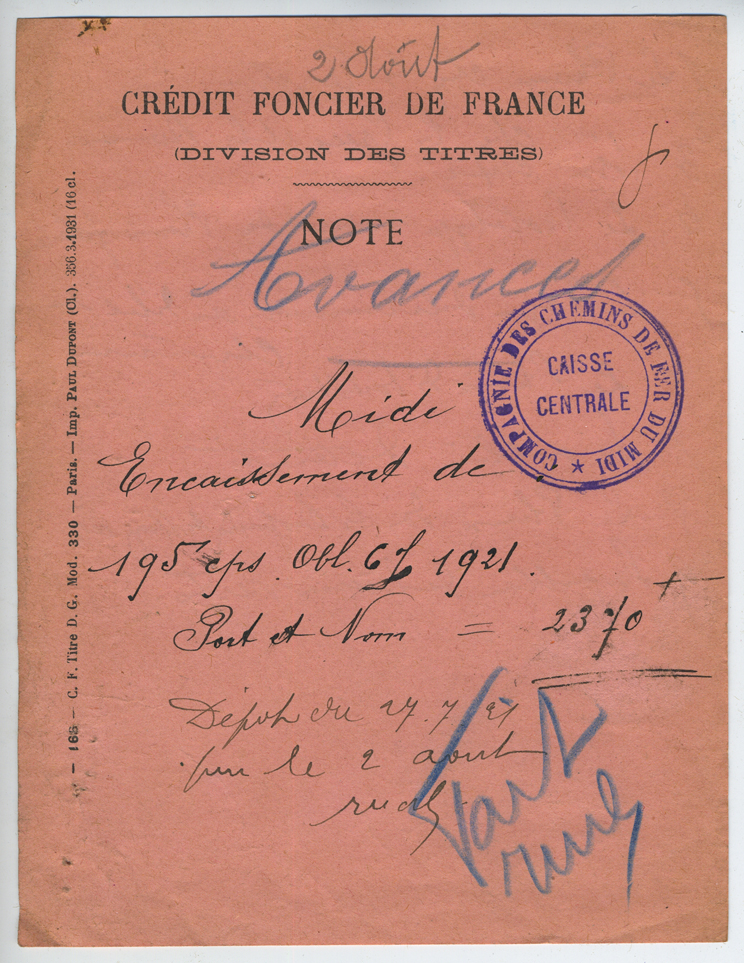 2 Août
CRÉDIT FONCIER DE FRANCE
(DIVISION DES TITRES)
NOTE
Avances
COMPAGNIE DES CHEMINS DE FER DU MIDI ★
CAISSE
CENTRALE
Midi
Encaissement de
195 cps. Obl. 6% 1921.
Port et Nom = 2370
Dépôt du 27.7
le 2 août
— 168 — C. F. Titre D. G. Mod. 330 — Paris. — Imp. PAUL DUPONT (Cl.). 356.3.1931 (16 cl.